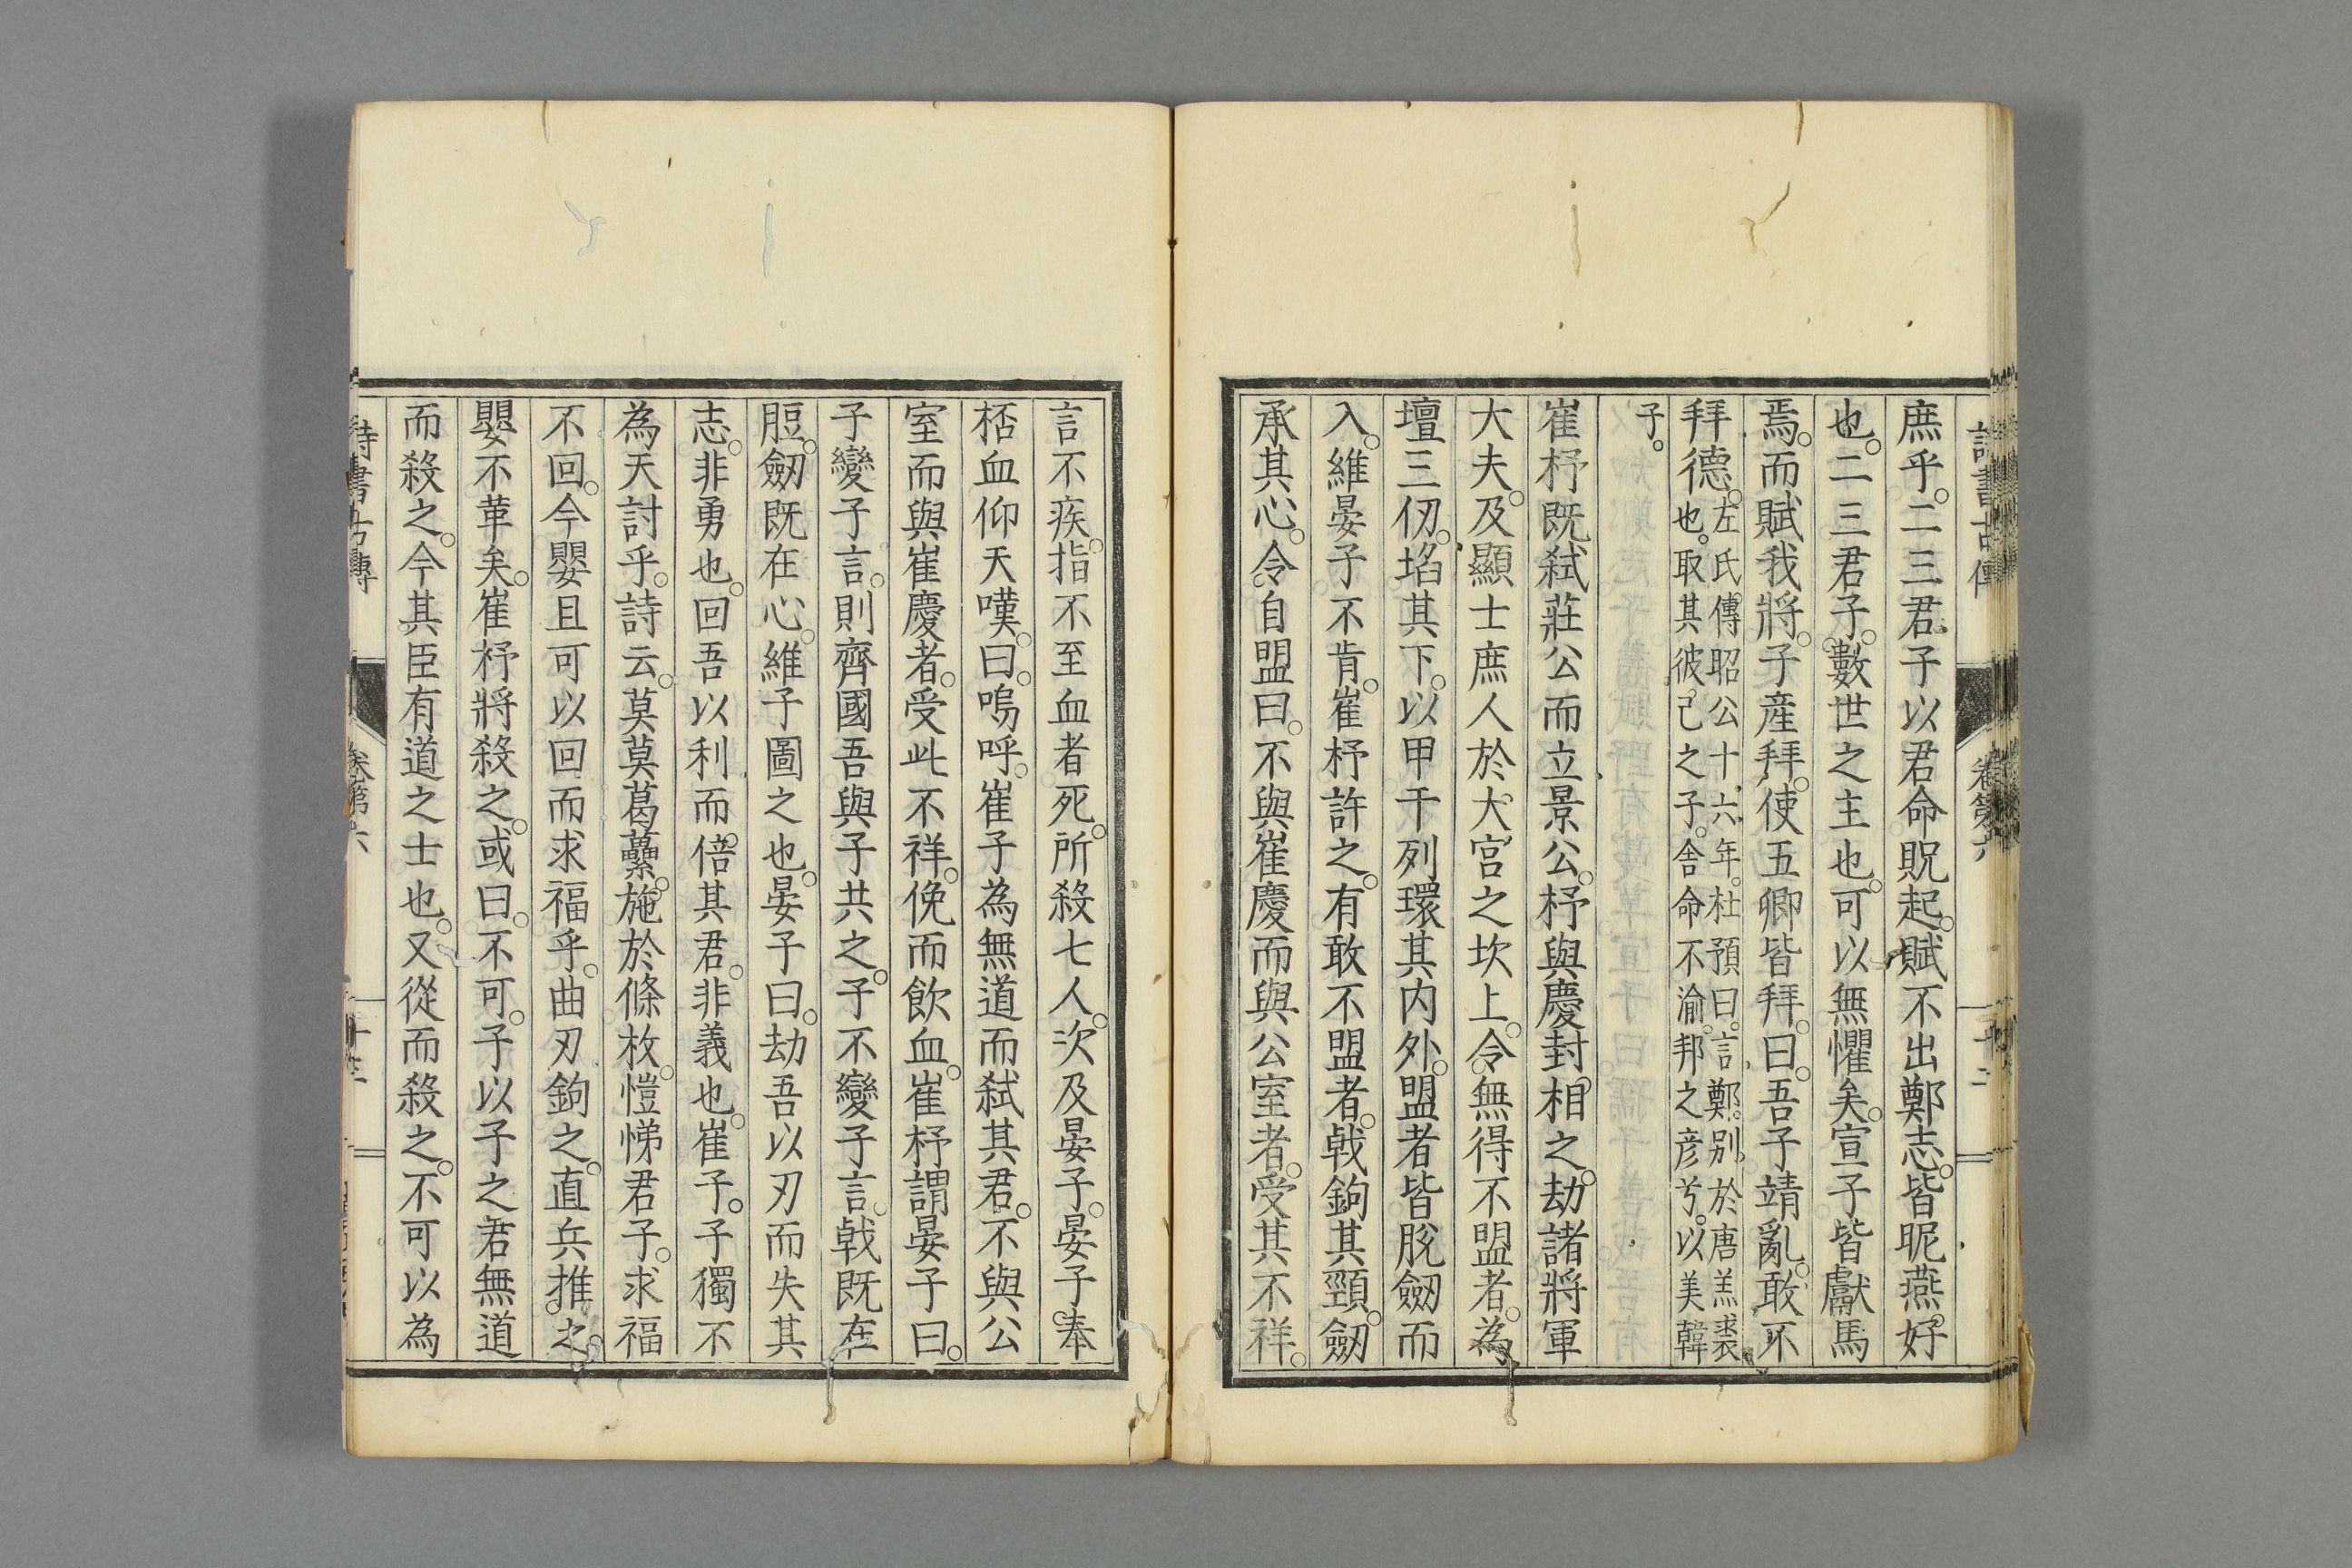 庶乎。二三君子以君命貺起。賦不出鄭志。皆昵燕。好
也。二三君子。數世之主也。可以無懼矣。宣子皆獻馬
焉。而賦我將。子產拜。使五卿皆拜。曰。吾子靖亂。敢不
拜德。左氏傳昭公十六年。杜預曰。言鄭。別於唐羔裘
也。取其彼己之子。舎命不渝。邦之彦兮。以美韓
子。
崔杼既弑莊公而立景公。杼與慶封相之。劫諸將軍
大夫。及顯士庶人於大宮之坎上。令無得不盟者。為
壇三仞。埳其下。以甲千列環其内外。盟者皆脱劒而
入。維晏子不肯。崔杼許之。有敢不盟者。戟鉤其頸。劒
承其心。令自盟曰。不與崔慶而與公室者。受其不祥。
言不疾。指不至血者死。所殺七人。次及晏子。晏子奉
桮血仰天嘆。曰。嗚呼。崔子為無道而弑其君。不與公
室而與崔慶者。受此不祥。俛而飲血。崔杼謂晏子曰。
子變子言。則齊國吾與子共之。子不變子言。戟既在
脰。劒既在心。維子圖之也。晏子曰。劫吾以刃而失其
志。非勇也。回吾以利而倍其君。非義也。崔子。子獨不
為天討乎。詩云。莫莫葛虆。施於條枚。愷悌君子。求福
不回。今嬰且可以回而求福乎。曲刃鉤之。直兵推之。
嬰不革矣。崔杼將殺之。或曰。不可。子以子之君無道
而殺之。今其臣有道之士也。又從而殺之。不可以為
詩書古傳 卷第六